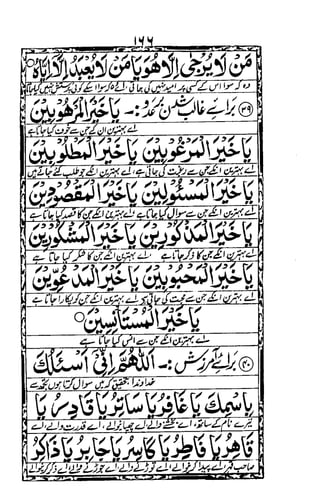 ۱۶۶
مَنْ لَا يُرْجٰى اِلَّا هُوَ يَا مَنْ لَا يُعْبَدُ اِلَّا اِيَّاهُ
وہ کہ سوا اس کے کسی پر امید نہیں کی جاتی اے کہ سوا اسکے کوئی
۳۹ برائے غالب شدن بر عدو :- يَا خَيْرَ الْمَرْهُوْبِيْنَ
اے بہترین ان کے جن سے خوف کیا جاتا ہے
يَا خَيْرَ الْمَرْغُوْبِيْنَ يَا خَيْرَ الْمَطْلُوْبِيْنَ
اے بہترین انکے جن سے رغبت کی جاتی ہے، اے بہترین انکے جو طلب کئے جاتے ہیں
يَا خَيْرَ الْمَسْئُوْلِيْنَ يَا خَيْرَ الْمَقْصُوْدِيْنَ
اے بہترین انکے جن سے سوال کیا جاتا ہے اے بہترین انکے جن کا قصد کیا جاتا ہے
يَا خَيْرَ الْمَذْكُوْرِيْنَ يَا خَيْرَ الْمَشْكُوْرِيْنَ
اے بہترین انکے جن کا ذکر کیا جاتا ہے اے بہترین انکے جن کا شکر کیا جاتا ہے
يَا خَيْرَ الْمَحْبُوْبِيْنَ يَا خَيْرَ الْمَدْعُوِّيْنَ
اے بہترین انکے جن سے محبت کی جاتی ہے اے بہترین انکے جن کو پکارا جاتا ہے
يَا خَيْرَ الْمُسْتَاْنِسِيْنَ
اے بہترین انکے جن سے انس کیا جاتا ہے
۴۰ برائے آمرزش :- اَللّٰهُمَّ اِنِّيْ اَسْئَلُكَ
خداوندا تحقیق کہ میں سوال کرتا ہوں تجھ سے
بِاسْمِكَ يَا غَافِرُ يَا سَاتِرُ يَا قَادِرُ يَا
تیرے نام کے ساتھ، اے بخشنے والے اے چھپانے والے اے قدرت والے اے
قَاهِرُ يَا فَاطِرُ يَا كَاسِرُ يَا جَابِرُ يَا ذَاكِرُ
صاحب قہر اے پیدا کرنے والے اے توڑنے والے اے جوڑنے والے اے ذکر کرنے والے